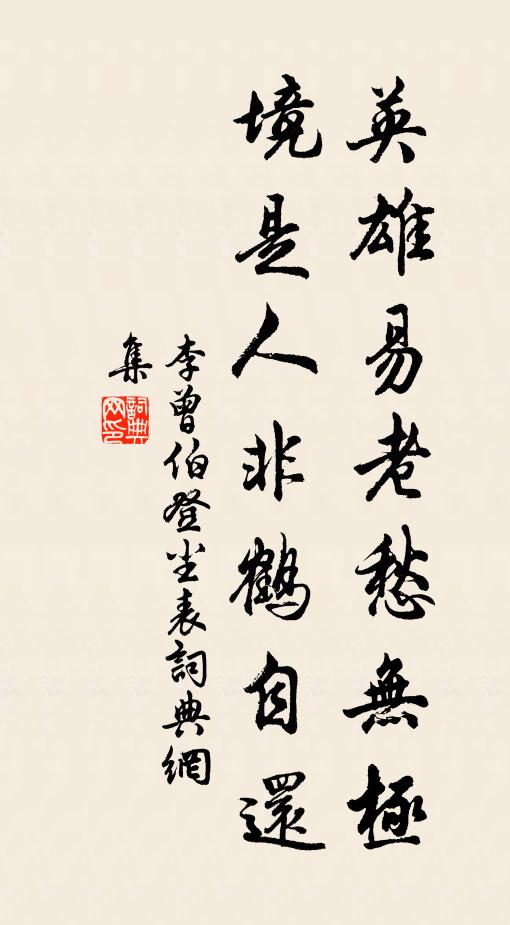 英雄易老愁無極
境是人非鶴自還
李曾伯登尘表詞典網
集
詞典
网印